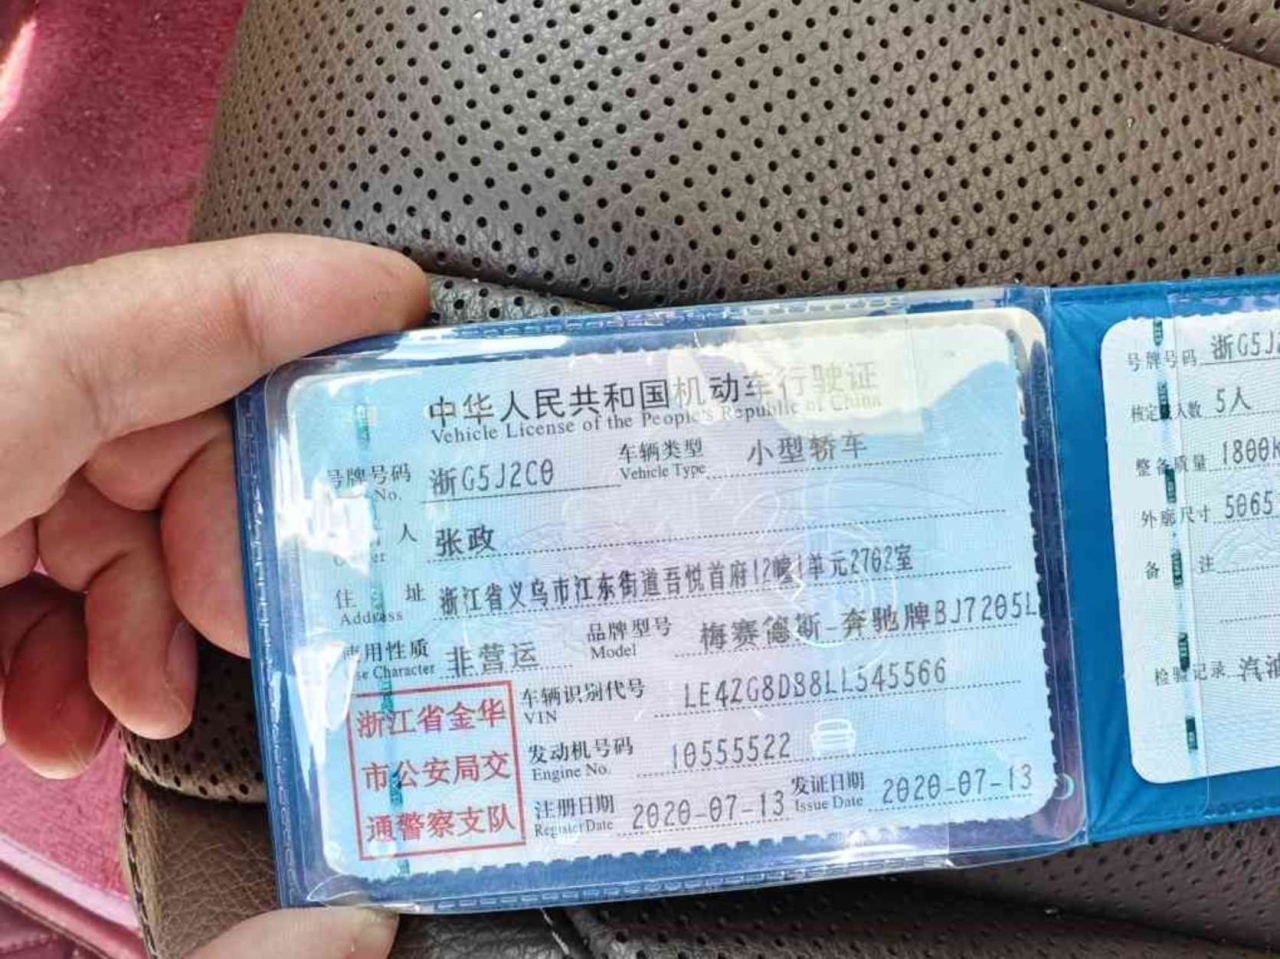 中华人民共和国机动车行驶证
Vehicle License of the People's Republic of China
号牌号码 浙G5J2C0 车辆类型 小型轿车
No. Vehicle Type
人 张政
住 址 浙江省义乌市江东街道吾悦首府12幢1单元2762室
Address
使用性质 非营运 品牌型号 梅赛德斯-奔驰牌BJ7205L
Use Character Model
浙江省金华
市公安局交
通警察支队
车辆识别代号 LE4ZG8DB8LL545566
VIN
发动机号码 10555522
Engine No.
注册日期 2020-07-13 发证日期 2020-07-13
Register Date Issue Date
号牌号码 浙G5J2
核定 人数 5人
整备质量 1800K
外廓尺寸 5065
备 注
检验记录 汽油